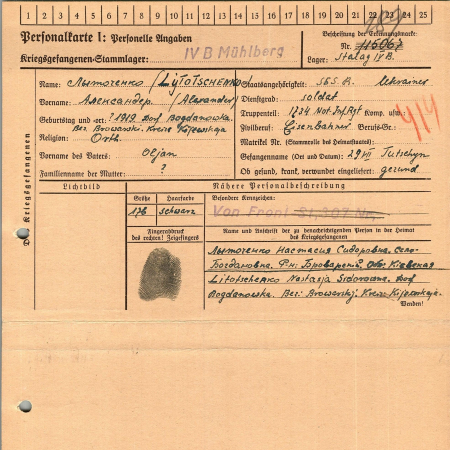 1 2 3 4 5 6 7 8 9 10 11 12 13 14 15 16 17 18 19 20 21 22 23 24 25
Personalkarte I: Personelle Angaben
Kriegsgefangenen-Stammlager: IV B Mühlberg
Beschriftung der Erkennungsmarke
Nr. 115067
Lager: Stalag IV B.
Des Kriegsgefangenen
Name: Лыточенко / LYTOTSCHENKO
Vorname: Александер. / Alexander /
Geburtstag und -ort: ? 1919 Dorf Bogdanowka,
Bez. Browarski. Kreis Kijewskaja
Religion: Orth.
Vorname des Vaters: Oljan
Familienname der Mutter: ?
Staatsangehörigkeit: S.S.S.R. Ukrainer
Dienstgrad: soldat
Truppenteil: 1734 Komp. usw.:
Zivilberuf: Eisenbahner Berufs-Gr.:
Matrikel Nr. (Stammrolle des Heimatstaates):
Gefangennahme (Ort und Datum): 29 VII Tutschyn
Ob gesund, krank, verwundet eingeliefert: gesund
4/4
Lichtbild
Nähere Personalbeschreibung
Größe Haarfarbe Besondere Kennzeichen:
176 schwarz Von Front-St. 307 Nr.
Fingerabdruck
des rechten! Zeigefingers
Name und Anschrift der zu benachrichtigenden Person in der Heimat
des Kriegsgefangenen
Лыточенко Настасия Сидоровна. Село
Богдановна. Р-н: Броварский. Обл: Киевская
Litotschenko Nastasja Sidorowna. Dorf
Bogdanowka. Bez: Browarskj. Kreis Kijewskaja.
Wenden!